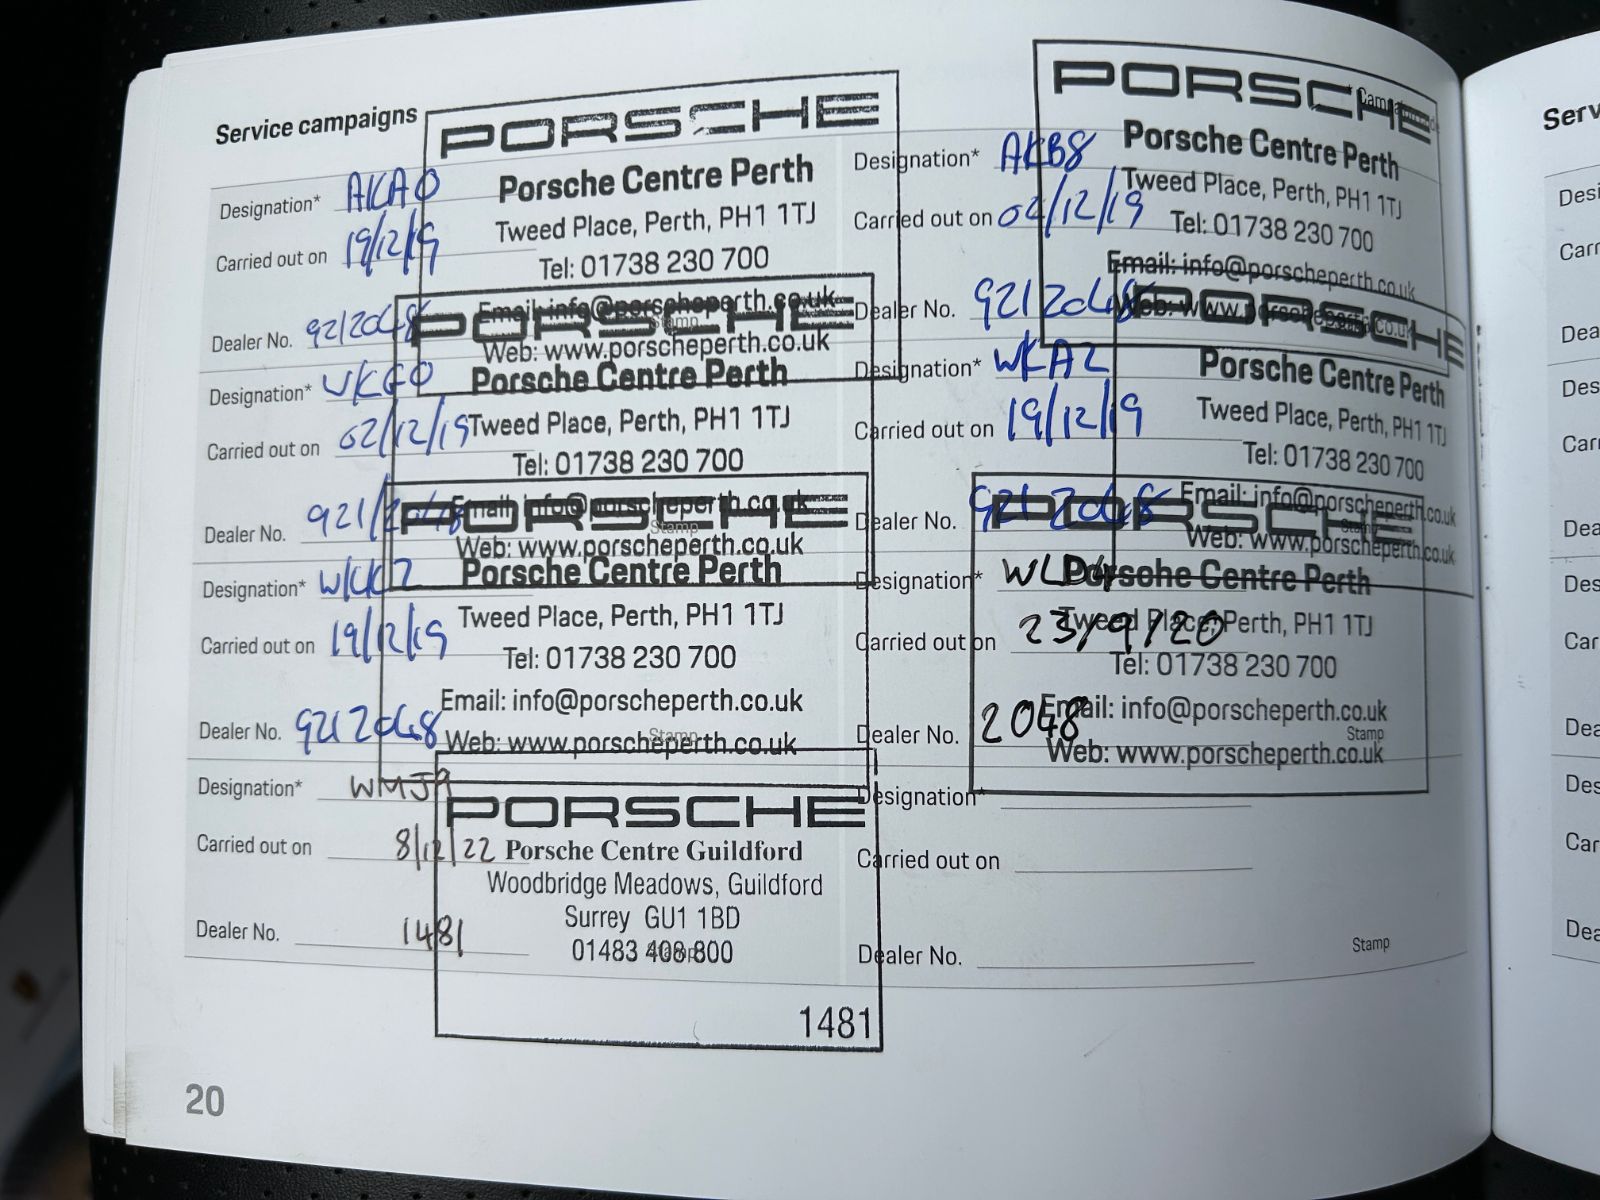 Service campaigns
Designation* AKA0
Carried out on 19/12/19
Dealer No. 92/2048
Stamp
PORSCHE
Porsche Centre Perth
Tweed Place, Perth, PH1 1TJ
Tel: 01738 230 700
Email: info@porscheperth.co.uk
Web: www.porscheperth.co.uk
Designation*
Carried out on 02/12/19
Dealer No. 921/2048
Stamp
PORSCHE
Porsche Centre Perth
Tweed Place, Perth, PH1 1TJ
Tel: 01738 230 700
Email: info@porscheperth.co.uk
Web: www.porscheperth.co.uk
Designation*
Carried out on 19/12/19
Dealer No. 9212048
Stamp
PORSCHE
Porsche Centre Perth
Tweed Place, Perth, PH1 1TJ
Tel: 01738 230 700
Email: info@porscheperth.co.uk
Web: www.porscheperth.co.uk
Designation* WMJ9
Carried out on 8/12/22
Dealer No. 1481
Stamp
PORSCHE
Porsche Centre Guildford
Woodbridge Meadows, Guildford
Surrey GU1 1BD
01483 408 800
1481
Designation* AKB8
Carried out on 02/12/19
Dealer No. 9212048
PORSCHE
Porsche Centre Perth
Tweed Place, Perth, PH1 1TJ
Tel: 01738 230 700
Email: info@porscheperth.co.uk
Web: www.porscheperth.co.uk
Designation* WKA2
Carried out on 19/12/19
Dealer No. 9212048
Stamp
PORSCHE
Porsche Centre Perth
Tweed Place, Perth, PH1 1TJ
Tel: 01738 230 700
Email: info@porscheperth.co.uk
Web: www.porscheperth.co.uk
Designation* WLD4
Carried out on 23/9/20
Dealer No. 2048
Stamp
PORSCHE
Porsche Centre Perth
Tweed Place, Perth, PH1 1TJ
Tel: 01738 230 700
Email: info@porscheperth.co.uk
Web: www.porscheperth.co.uk
Designation*
Carried out on
Dealer No.
Stamp
20